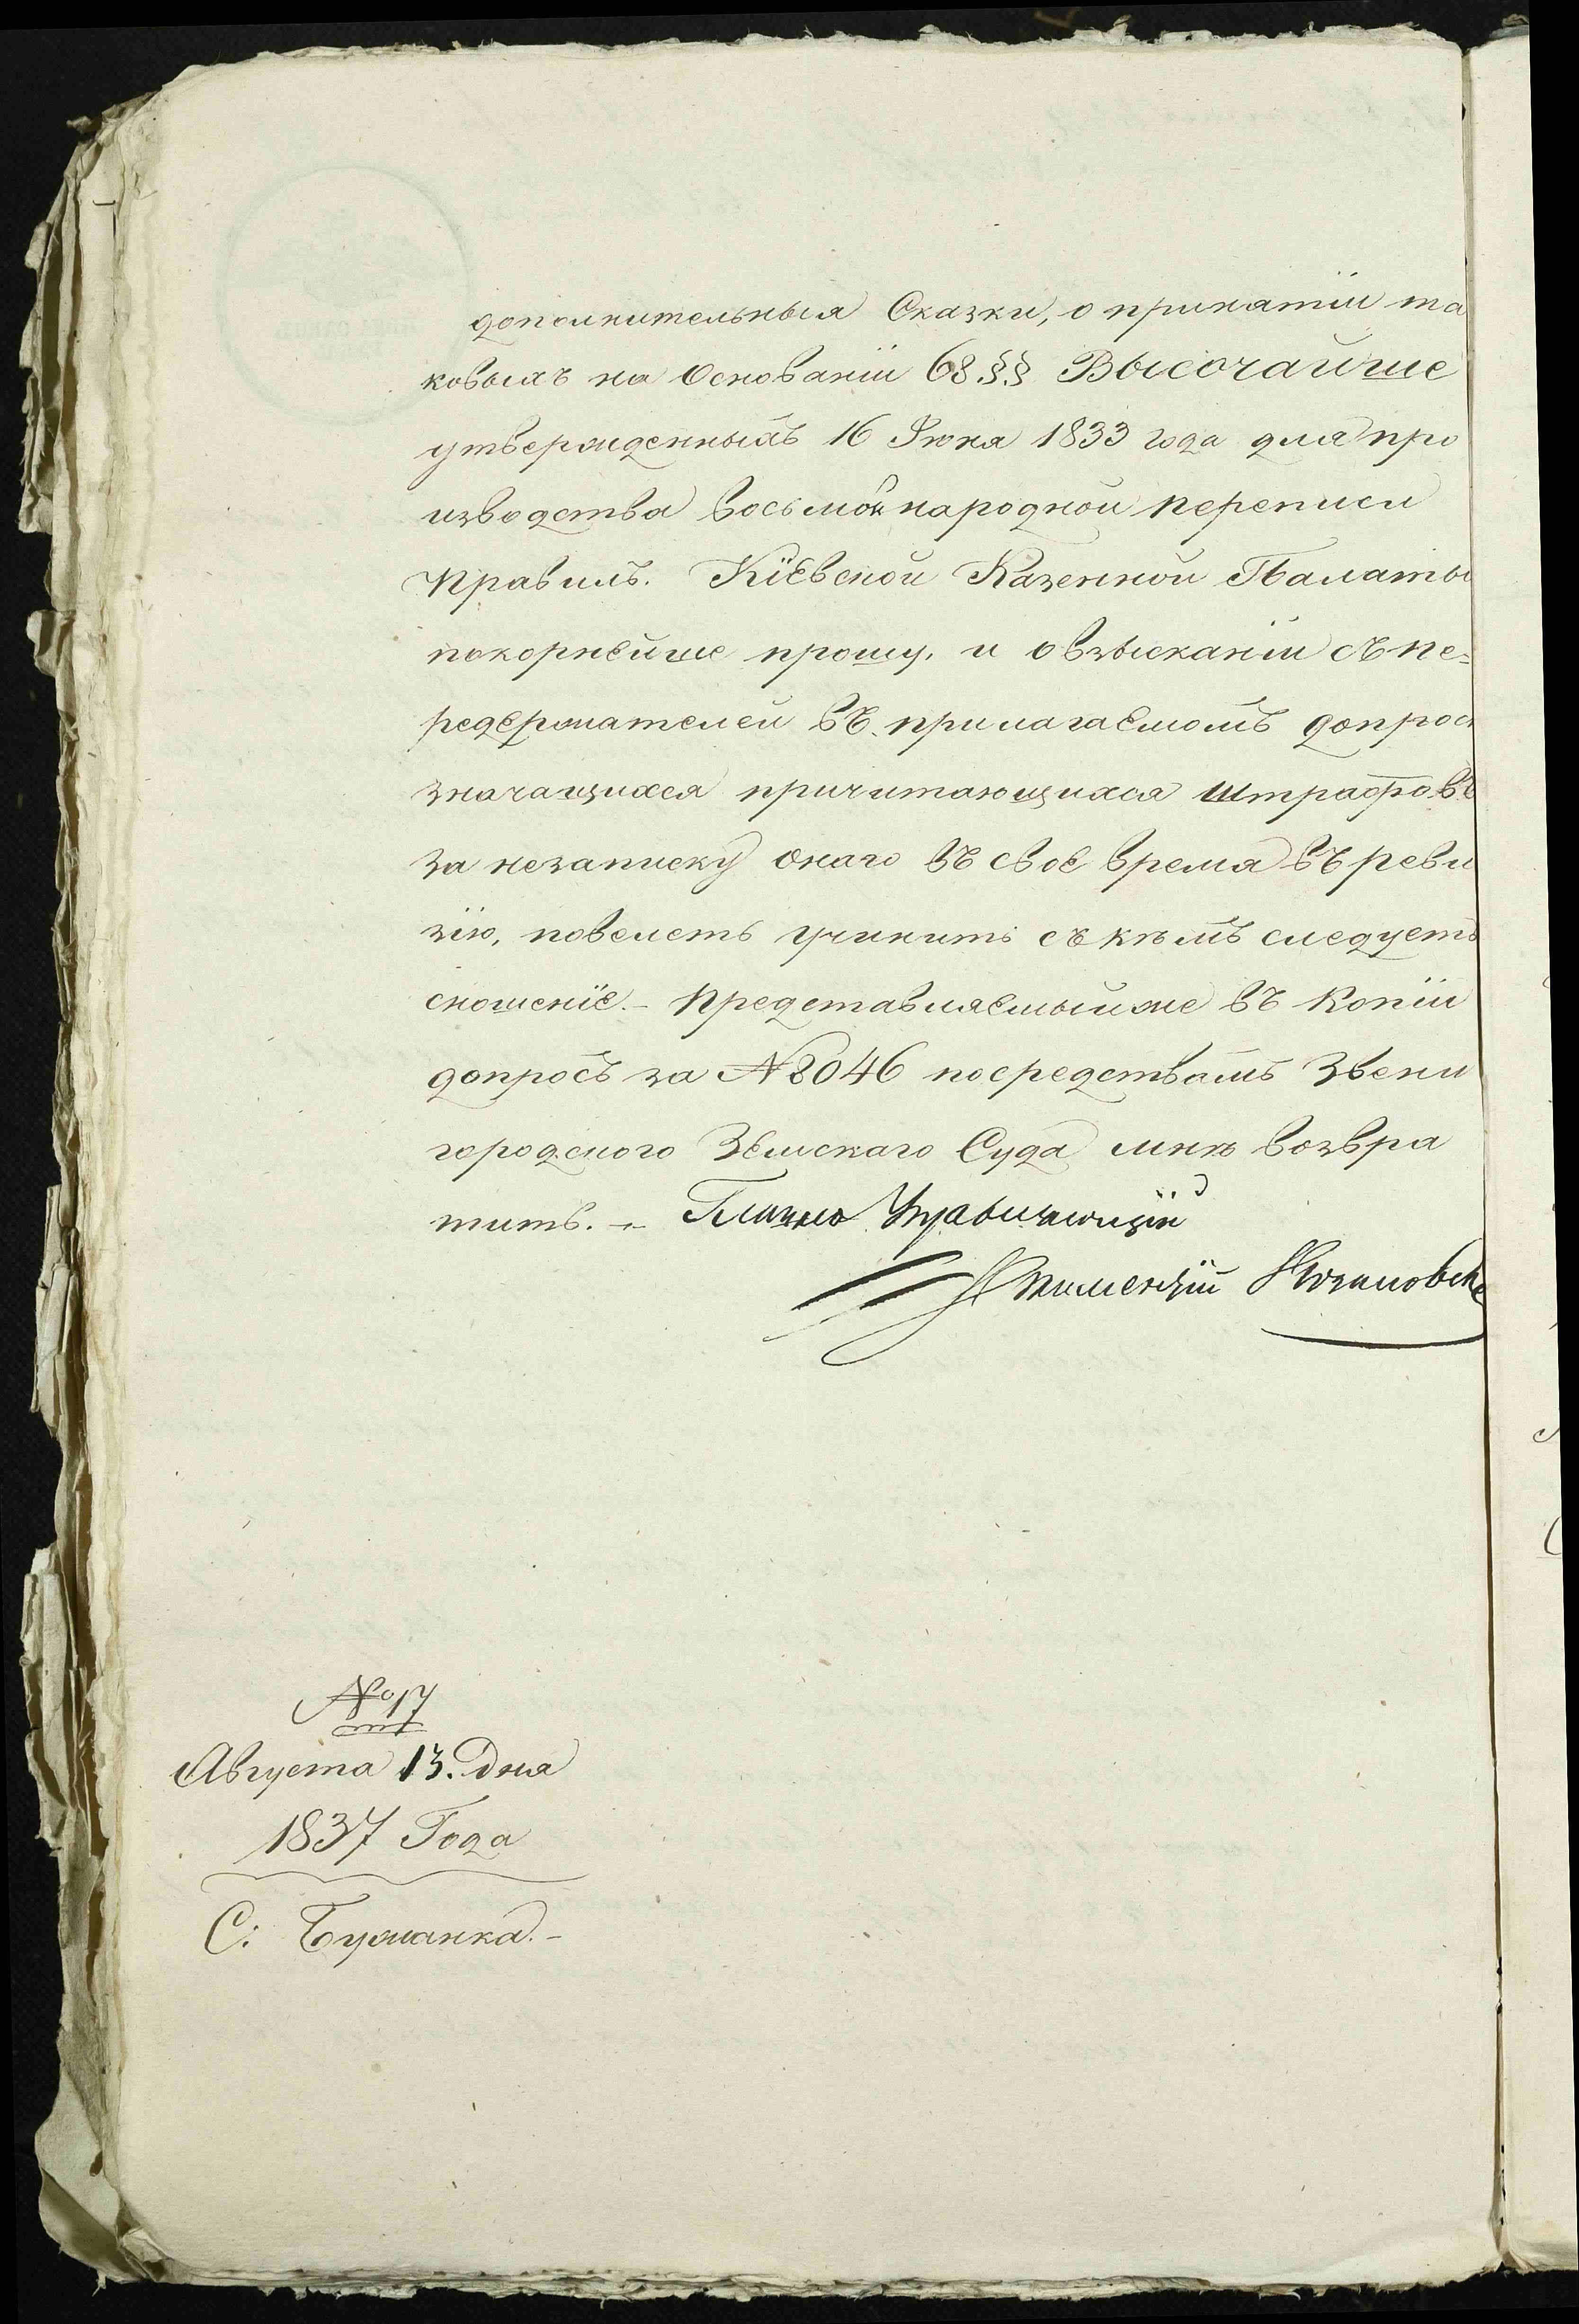 дополнительныя Сказки, о принятіи та
ковыхъ на Основаніи 68 §§ Высочайше
утвержденныхъ 16 Іюня 1833 года для про
изводства восьмой народной переписи
правилъ. Кіевской Казенной Палаты
покорнейше прошу, и о взысканіи съ пе=
редержателей въ прилагаемомъ допрос
значащихся причитающихся штрафовъ
за незаписку онаго въ свое время въ реви
зію, повелеть учинить съ кѣмъ следуетъ
сношеніе. – Представляемый же въ Копіи
допросъ за № 8046 посредствомъ Звени
городского Земскаго Суда мнѣ возвра
тить. –
№ 17
Августа 13. Дня
1837 Года
С: Бужанка. –